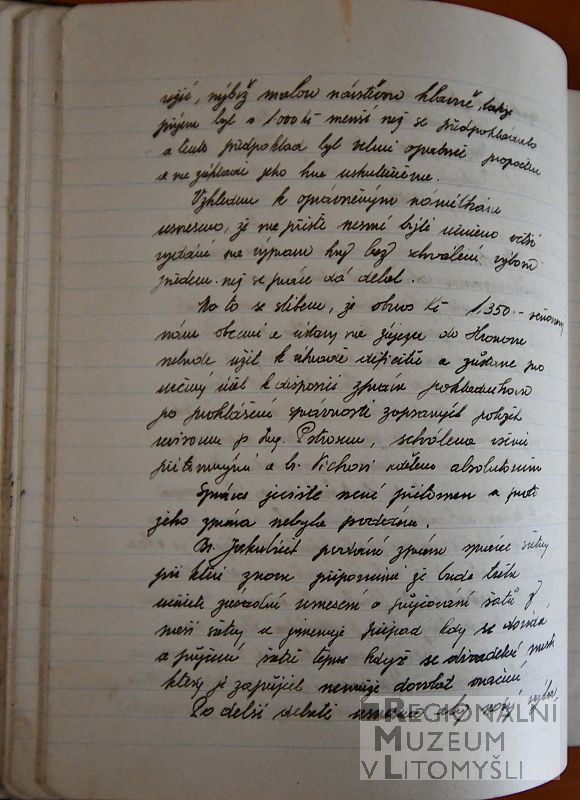 režií, nýbrž malou návštěvou hlavně, takže
příjem byl o 1000 Kč menší než se předpokládalo
a tento předpoklad byl velmi opatrně propočten
a na základě jeho hra uskutečněna.
Vzhledem k oprávněným námitkám
usneseno, že na příště nesmí býti učiněno větší
vydání na výpravu hry bez schválení výboru
předem než se práce dá dělat.
Na to se slibem, že obnos Kč 1.350.- věnovaný
nám obcemi a ústavy na zájezd do Hronova
nebude užit k úhradě deficitů a zůstane pro
určený účel k disposici zpráva pokladníkova
po prohlášení správnosti zapsaných položek
revisorem p. Ing. Petrosem, schválena všemi
přítomnými a br. Vichovi uděleno absolutorium
Správce jeviště není přítomen a proto
jeho zpráva nebyla podána.
Br. Jakubíček podává zprávu správce šatny
při které znovu připomíná že bude třeba
učiniti zásadní usnesení o půjčování šatů z
naší šatny a jmenuje případ kdy se
a půjčení šatů teprve když se divadelní
který je zapůjčil nemůže dovolat vrácení.
Po delší debatě usneseno aby nový výbor,
REGIONÁLNÍ
MUZEUM
V LITOMYŠLI